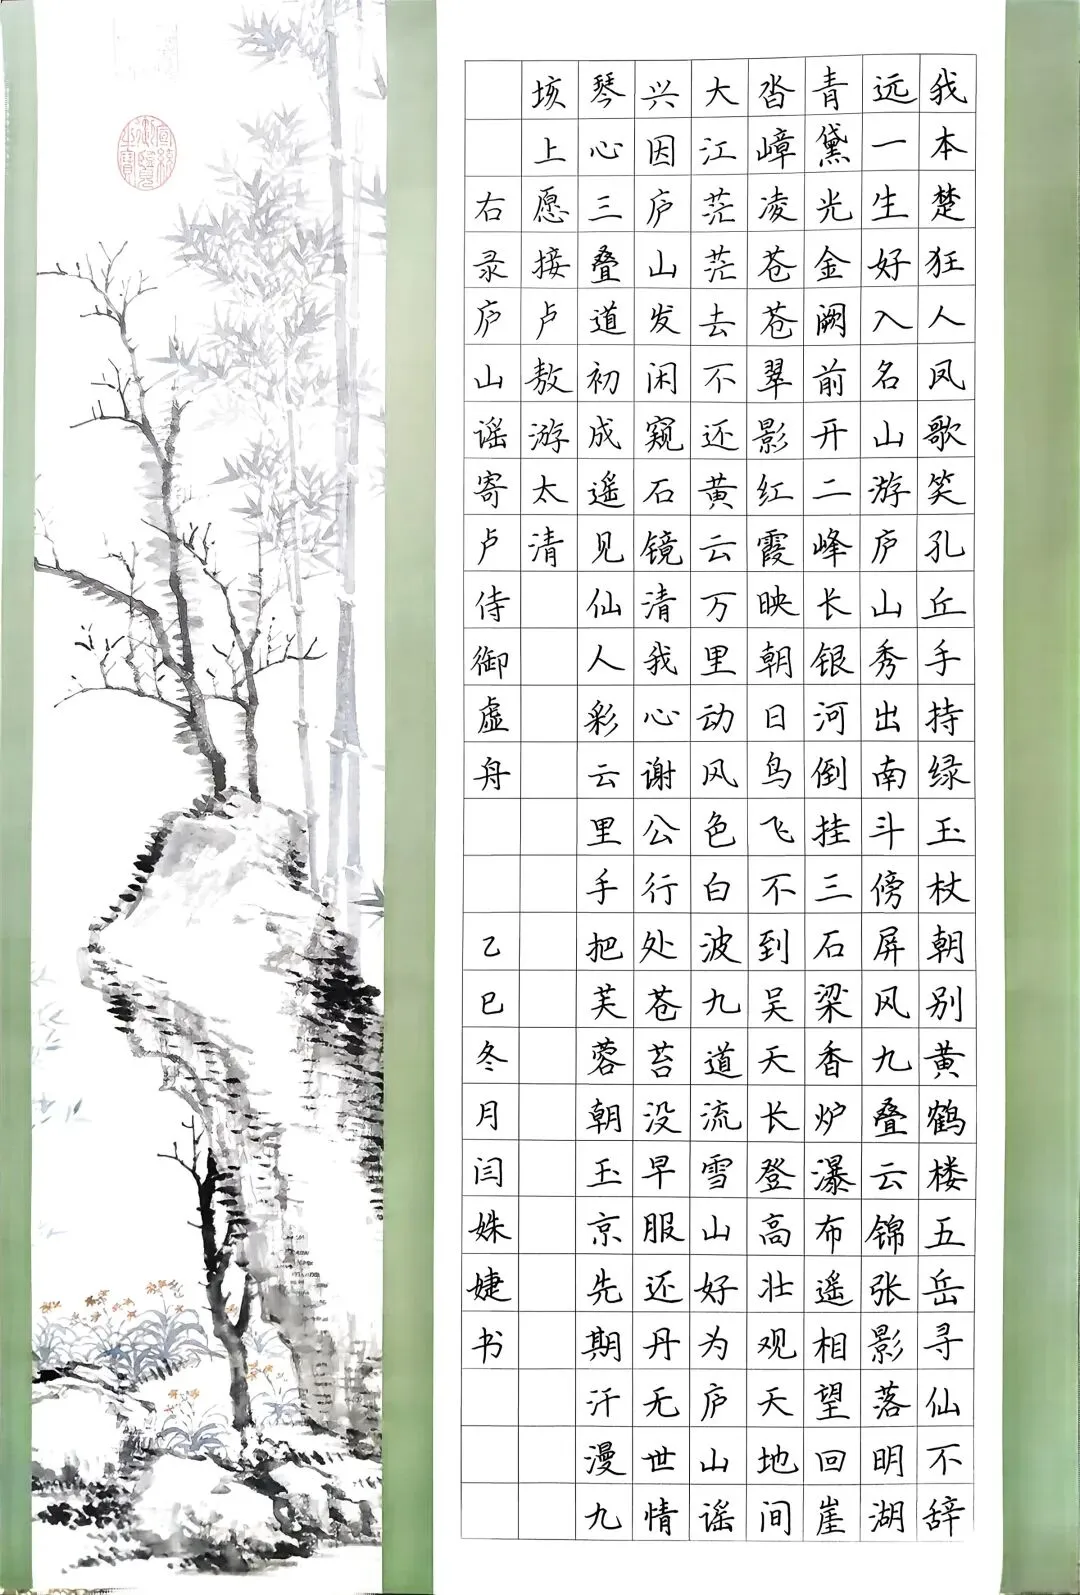 我本楚狂人凤歌笑孔丘手持绿玉杖朝别黄鹤楼五岳寻仙不辞
远一生好入名山游庐山秀出南斗傍屏风九叠云锦张影落明湖
青黛光金阙前开二峰长银河倒挂三石梁香炉瀑布遥相望回崖
沓嶂凌苍苍翠影红霞映朝日鸟飞不到吴天长登高壮观天地间
大江茫茫去不还黄云万里动风色白波九道流雪山好为庐山谣
兴因庐山发闲窥石镜清我心谢公行处苍苔没早服还丹无世情
琴心三叠道初成遥见仙人彩云里手把芙蓉朝玉京先期汗漫九
垓上愿接卢敖游太清
右录庐山谣寄卢侍御虚舟 乙巳冬月闫姝婕书